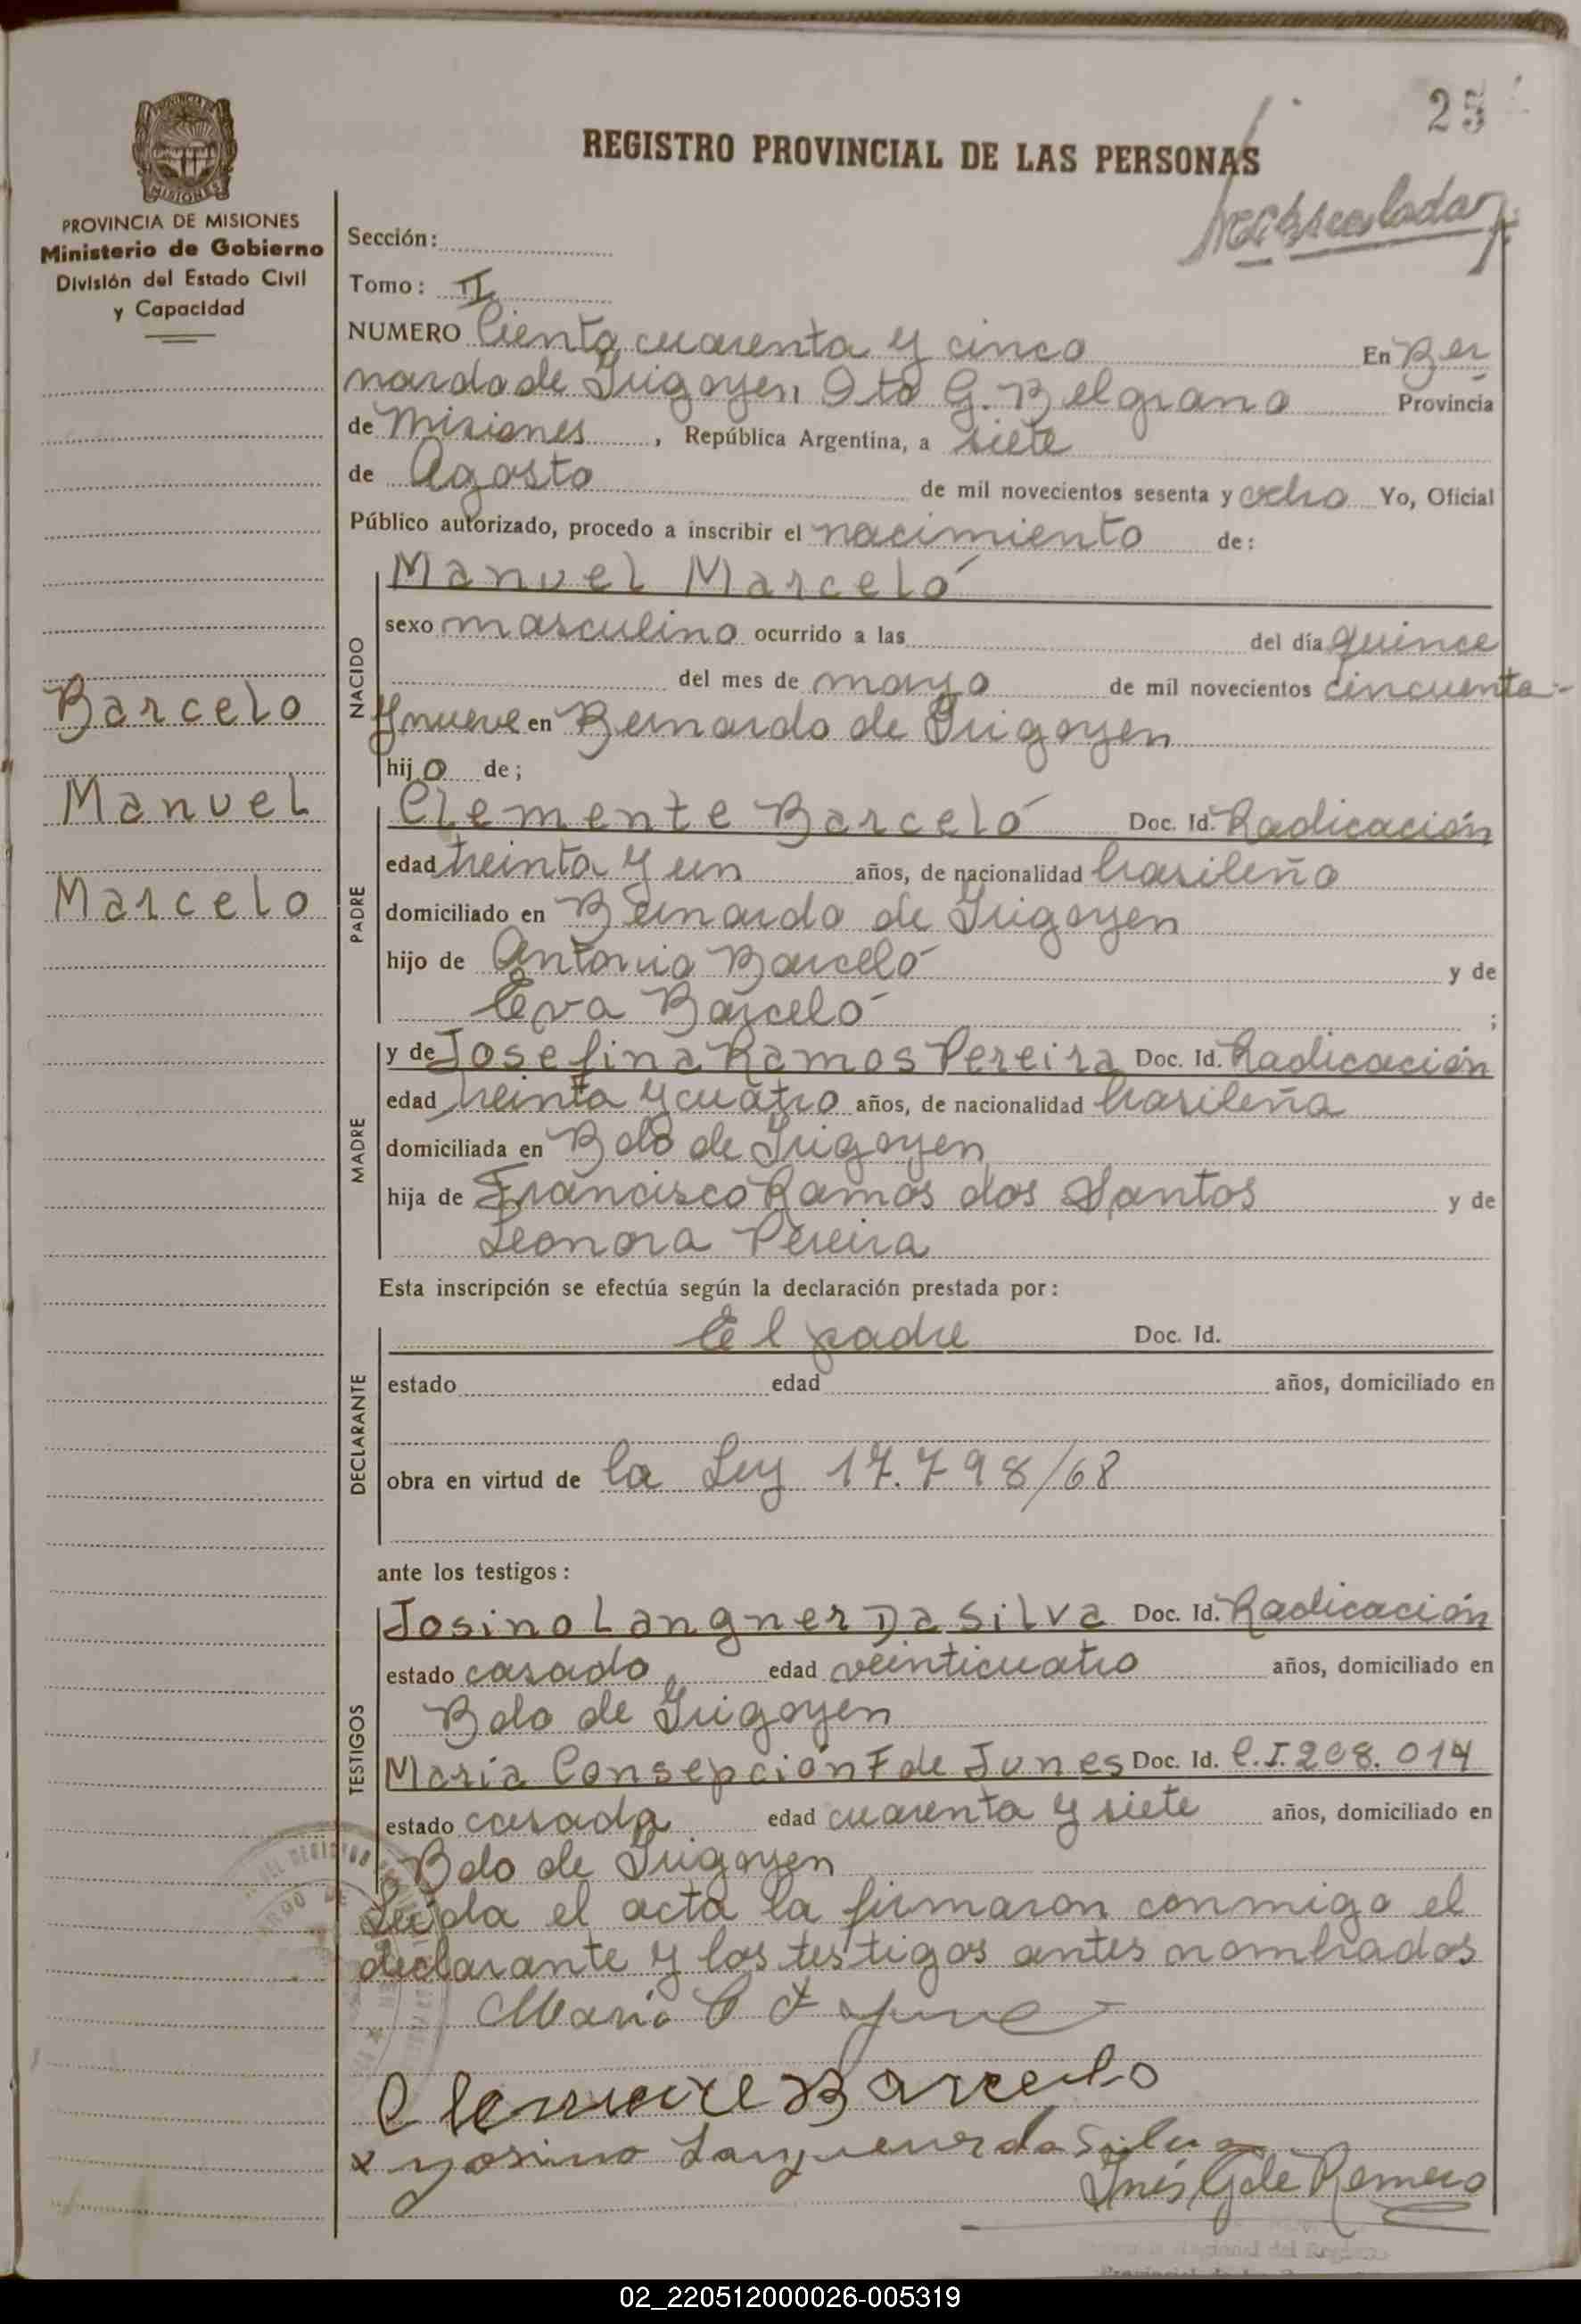 25
REGISTRO PROVINCIAL DE LAS PERSONAS
MISIONES
PROVINCIA DE MISIONES
Ministerio de Gobierno
División del Estado Civil
y Capacidad
Sección:
Tomo: II
NUMERO Ciento cuarenta y cinco En Ber
nardo de Irigoyen Dto G. Belgrano Provincia
de Misiones, República Argentina, a siete
de Agosto de mil novecientos sesenta y ocho Yo, Oficial
Público autorizado, procedo a inscribir el nacimiento de:
Manuel Marceló
NACIDO
sexo masculino ocurrido a las del día quince
del mes de mayo de mil novecientos cincuenta
y nueve en Bernardo de Irigoyen
hijo de;
Barcelo
Manuel
Marcelo
PADRE
Clemente Barceló Doc. Id. Radicación
edad treinta y un años, de nacionalidad brasileño
domiciliado en Bernardo de Irigoyen
hijo de Antonio Barceló y de
Eva Barceló ;
MADRE
y de Josefina Ramos Pereira Doc. Id. Radicación
edad treinta y cuatro años, de nacionalidad brasileña
domiciliada en Bdo de Irigoyen
hija de Francisco Ramos dos Santos y de
Leonora Pereira
Esta inscripción se efectúa según la declaración prestada por:
DECLARANTE
El padre Doc. Id.
estado edad años, domiciliado en
obra en virtud de la Ley 17.798/68
ante los testigos:
TESTIGOS
Josino Langner Da Silva Doc. Id. Radicación
estado casado edad veinticuatro años, domiciliado en
Bdo de Irigoyen
María Consepción F de Junes Doc. Id. C.I. 208.014
estado casada edad cuarenta y siete años, domiciliado en
Bdo de Irigoyen
Leída el acta la firmaron conmigo el
declarante y los testigos antes nombrados
Maria C F
Clemente Barcelo
x yosino Langner da Silva
Inés G de Romero
02_220512000026-005319